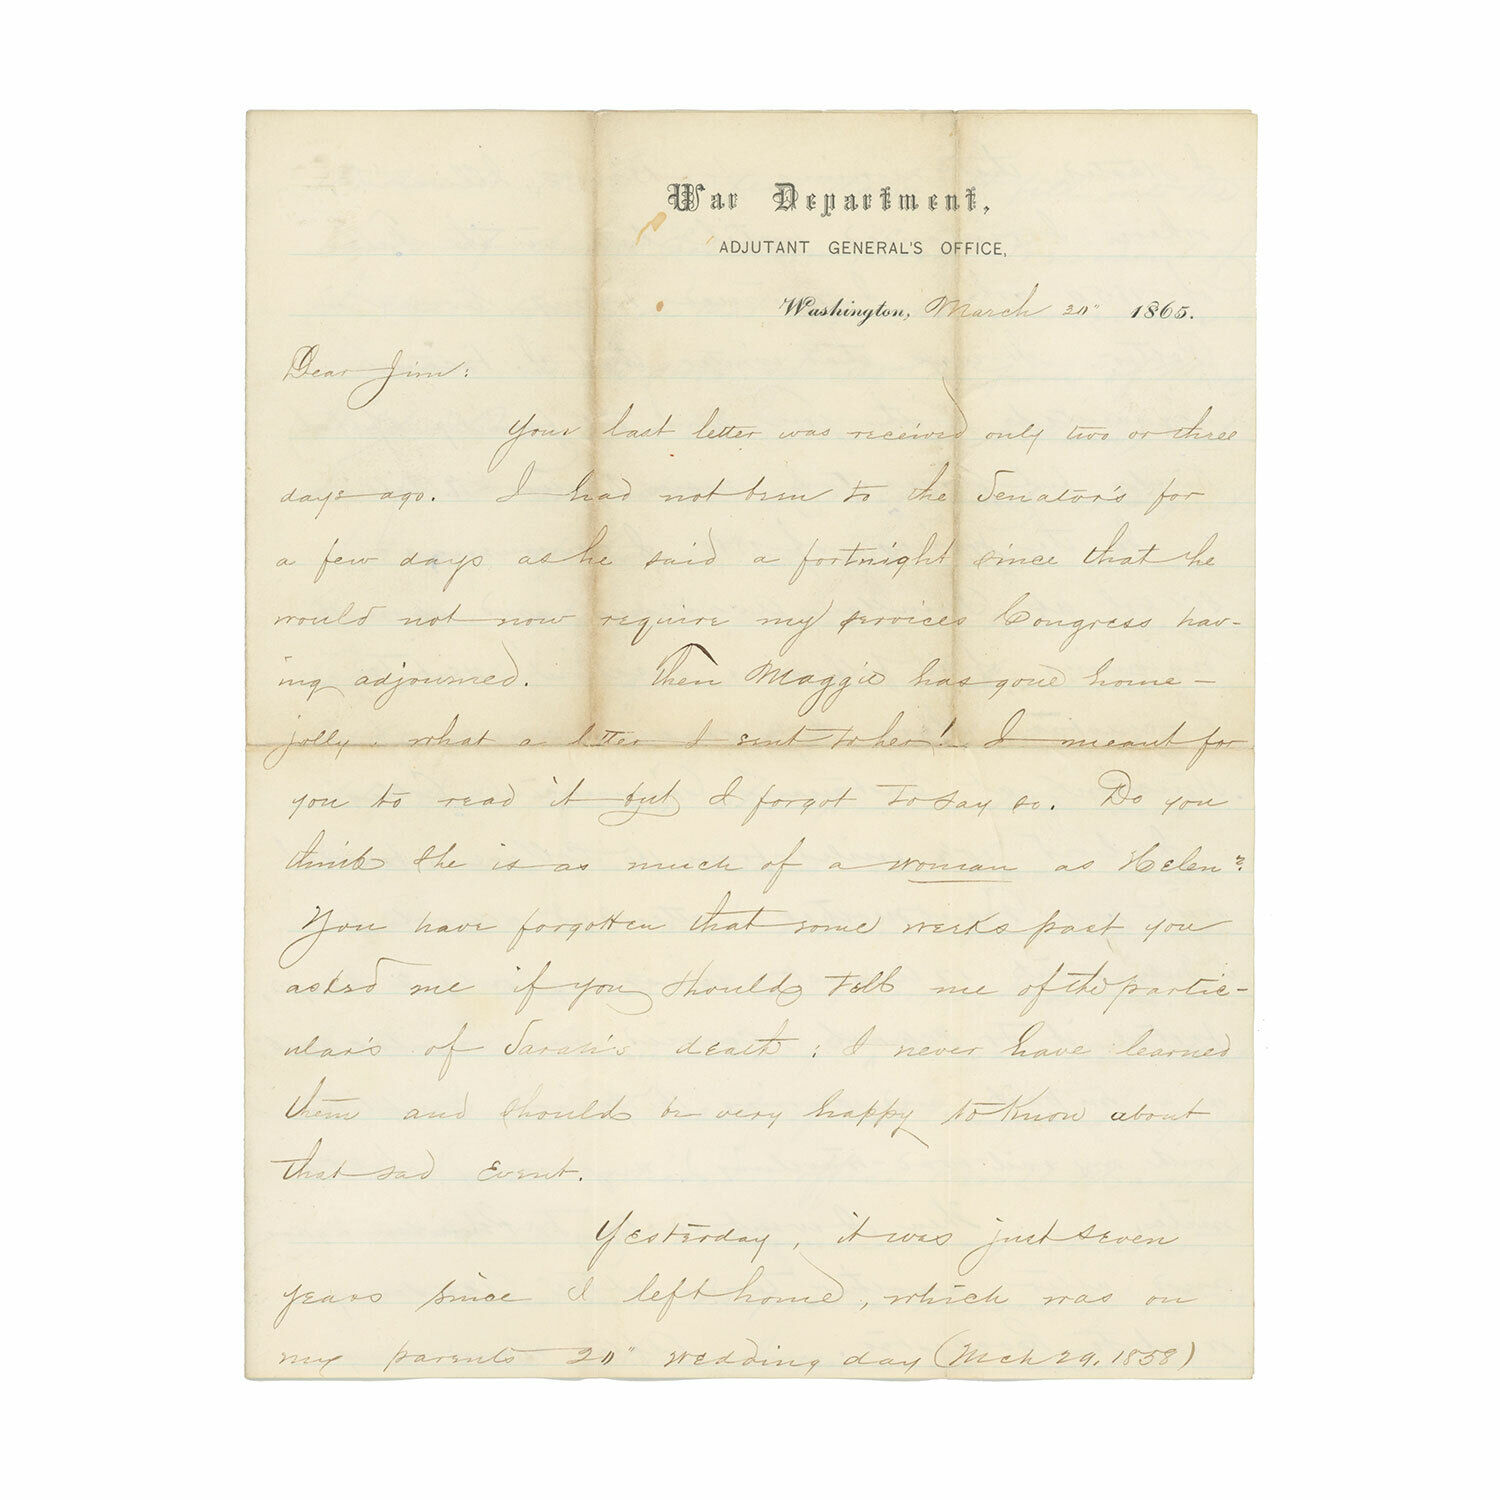 War Department,
ADJUTANT GENERAL'S OFFICE,
Washington, March 30" 1865.
Dear Jim:
Your last letter was received only two or three
days ago. I had not been to the Senator's for
a few days as he said a fortnight since that he
would not now require my services Congress hav-
ing adjourned. Then Maggie has gone home —
jolly, what a letter I sent to her! I meant for
you to read it but I forgot to say so. Do you
think she is as much of a woman as Helen?
You have forgotten that some weeks past you
asked me if you should tell me of the partic-
ular's of Sarah's death; I never have learned
them and should be very happy to know about
that sad event.
Yesterday, it was just seven
years since I left home, which was on
my parents 20" wedding day (Mch 29, 1858)